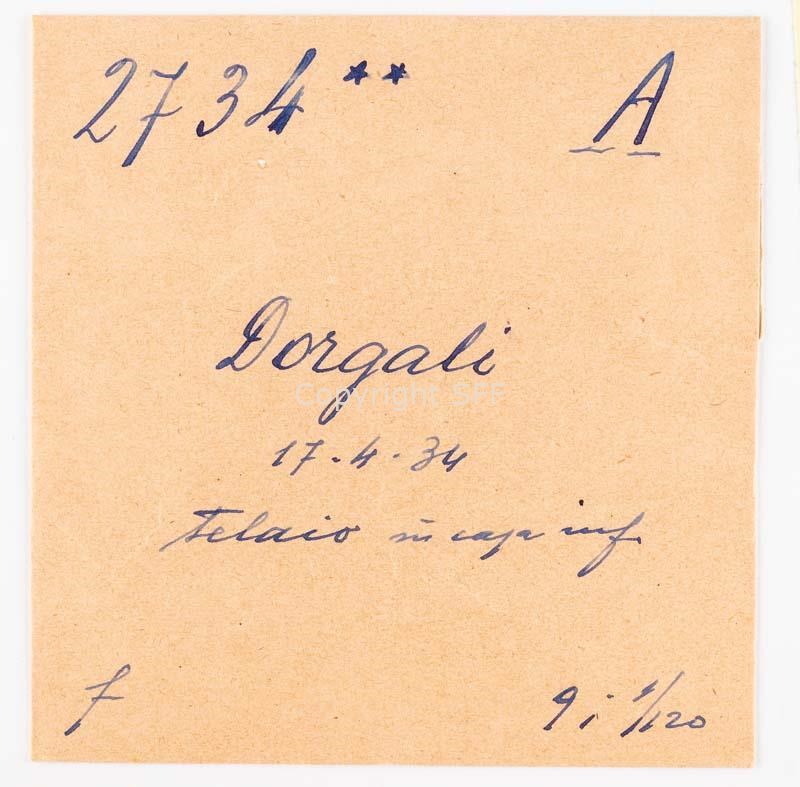 2734** A
Dorgali
Copyright SFF
17.4.34
Telaio in casa inf.
f
9 i 1/120